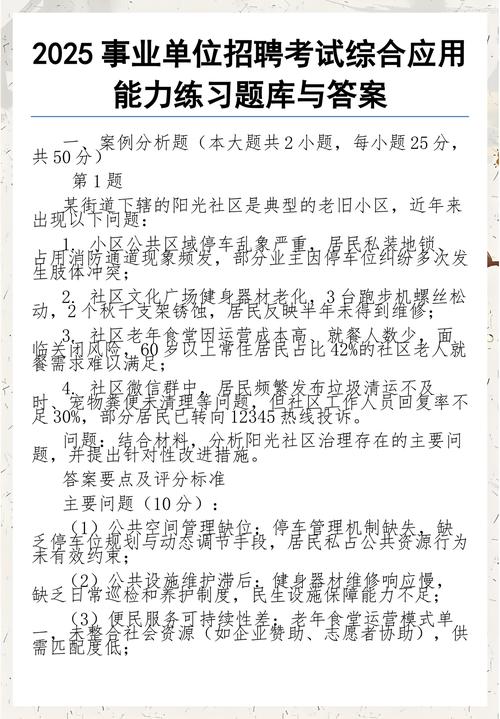 2025 事业单位招聘考试综合应用
能力练习题库与答案
一、案例分析题（本大题共 2 小题，每小题 25 分，
共 50 分）
第 1 题
某街道下辖的阳光社区是典型的老旧小区，近年来
出现以下问题：
1. 小区公共区域停车乱象严重，居民私装地锁、
占用消防通道现象频发，部分业主因停车位纠纷多次发
生肢体冲突；
2. 社区文化广场健身器材老化，3 台跑步机螺丝松
动，2 个秋千支架锈蚀，居民反映半年未得到维修；
3. 社区老年食堂因运营成本高、就餐人数少，面
临关闭风险，60 岁以上常住居民占比 42%的社区老人就
餐需求难以满足；
4. 社区微信群中，居民频繁发布垃圾清运不及
时、宠物粪便未清理等问题，但社区工作人员回复率不
足 30%，部分居民已转向 12345 热线投诉。
问题：结合材料，分析阳光社区治理存在的主要问
题，并提出针对性改进措施。
答案要点及评分标准
主要问题（10 分）：
（1）公共空间管理缺位：停车管理机制缺失，缺
乏停车位规划与动态调节手段，居民私占公共资源行为
未有效约束；
（2）公共设施维护滞后：健身器材维修响应慢，
缺乏日常巡检和养护制度，民生设施保障能力不足；
（3）便民服务可持续性差：老年食堂运营模式单
一，未整合社会资源（如企业赞助、志愿者协助），供
需匹配度低；